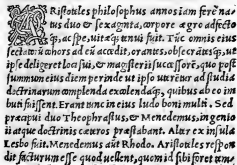 ARistoteles philosophus annos iam ferè na
tus duo & sexaginta, corpore ægro adfectoq́;
ac spe, uitæq́; tenui fuit. Tūc omnis eius
sectatorū cohors ad eū accedit, orantes, obsecrātesq́;, ut
ipse deligeret loci sui, & magisterij successorē, quo post
summum eius diem perinde ut ipso uterētur ad studia
doctrinarum complenda excolendaq́;, quibus ab eo im
buti fuissent. Erant tunc in eius ludo boni multi. Sed
præcipui duo Theophrastus, & Menedemus, ingenio
ij atque doctrinis cæteros præstabant. Alter ex insula
Lesbo fuit. Menedemus aūt Rhodo. Aristoteles respon
dit facturum esse quod uellent, quom id sibi foret tem